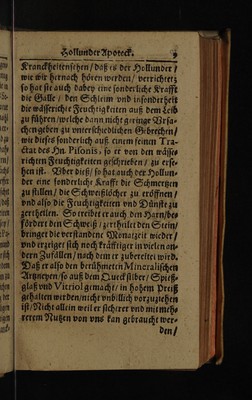 Hollunder Apoteck.
Kranckheiten sehen / daß er der Hollunder /
wie wir hernach hören werden / verrichtet;
so hat sie auch dabey eine sonderliche Krafft
die Galle / den Schleim und insonderheit
die wässerichte Feuchtigkeiten auß dem Leib
zu führen / welche dann nicht geringe Ursa-
chen geben zu unterschiedlichen Gebrechen /
wie dieses sonderlich auß einem feinen Tra-
ctat des Hn. Pisonis, so er von den wässe-
richten Feuchtigkeiten geschrieben / zu erse-
hen ist. Uber dieß / so hat auch der Hollun-
der eine sonderliche Krafft die Schmertzen
zu stillen / die Schweißlöcher zu eröffnen /
und also die Feuchtigkeiten und Dünste zu
zertheilen. So treibet er auch den Harn / be-
fördert den Schweiß / zertheilet den Stein /
bringet die verstandene Monatzeit wieder /
und erzeiget sich noch kräfftiger in vielen an-
dern Zufällen / nach dem er zubereitet wird.
Daß er also den berühmeten Mineralischen
Artzneyen / so auß dem Quecksilber / Spieß-
glaß und Vitriol gemacht / in hohem Preiß
gehalten werden / nicht unbillich vorzuziehen
ist / Nicht allein weil er sicherer und mit meh-
rerem Nutzen von uns kan gebraucht wer-
den /